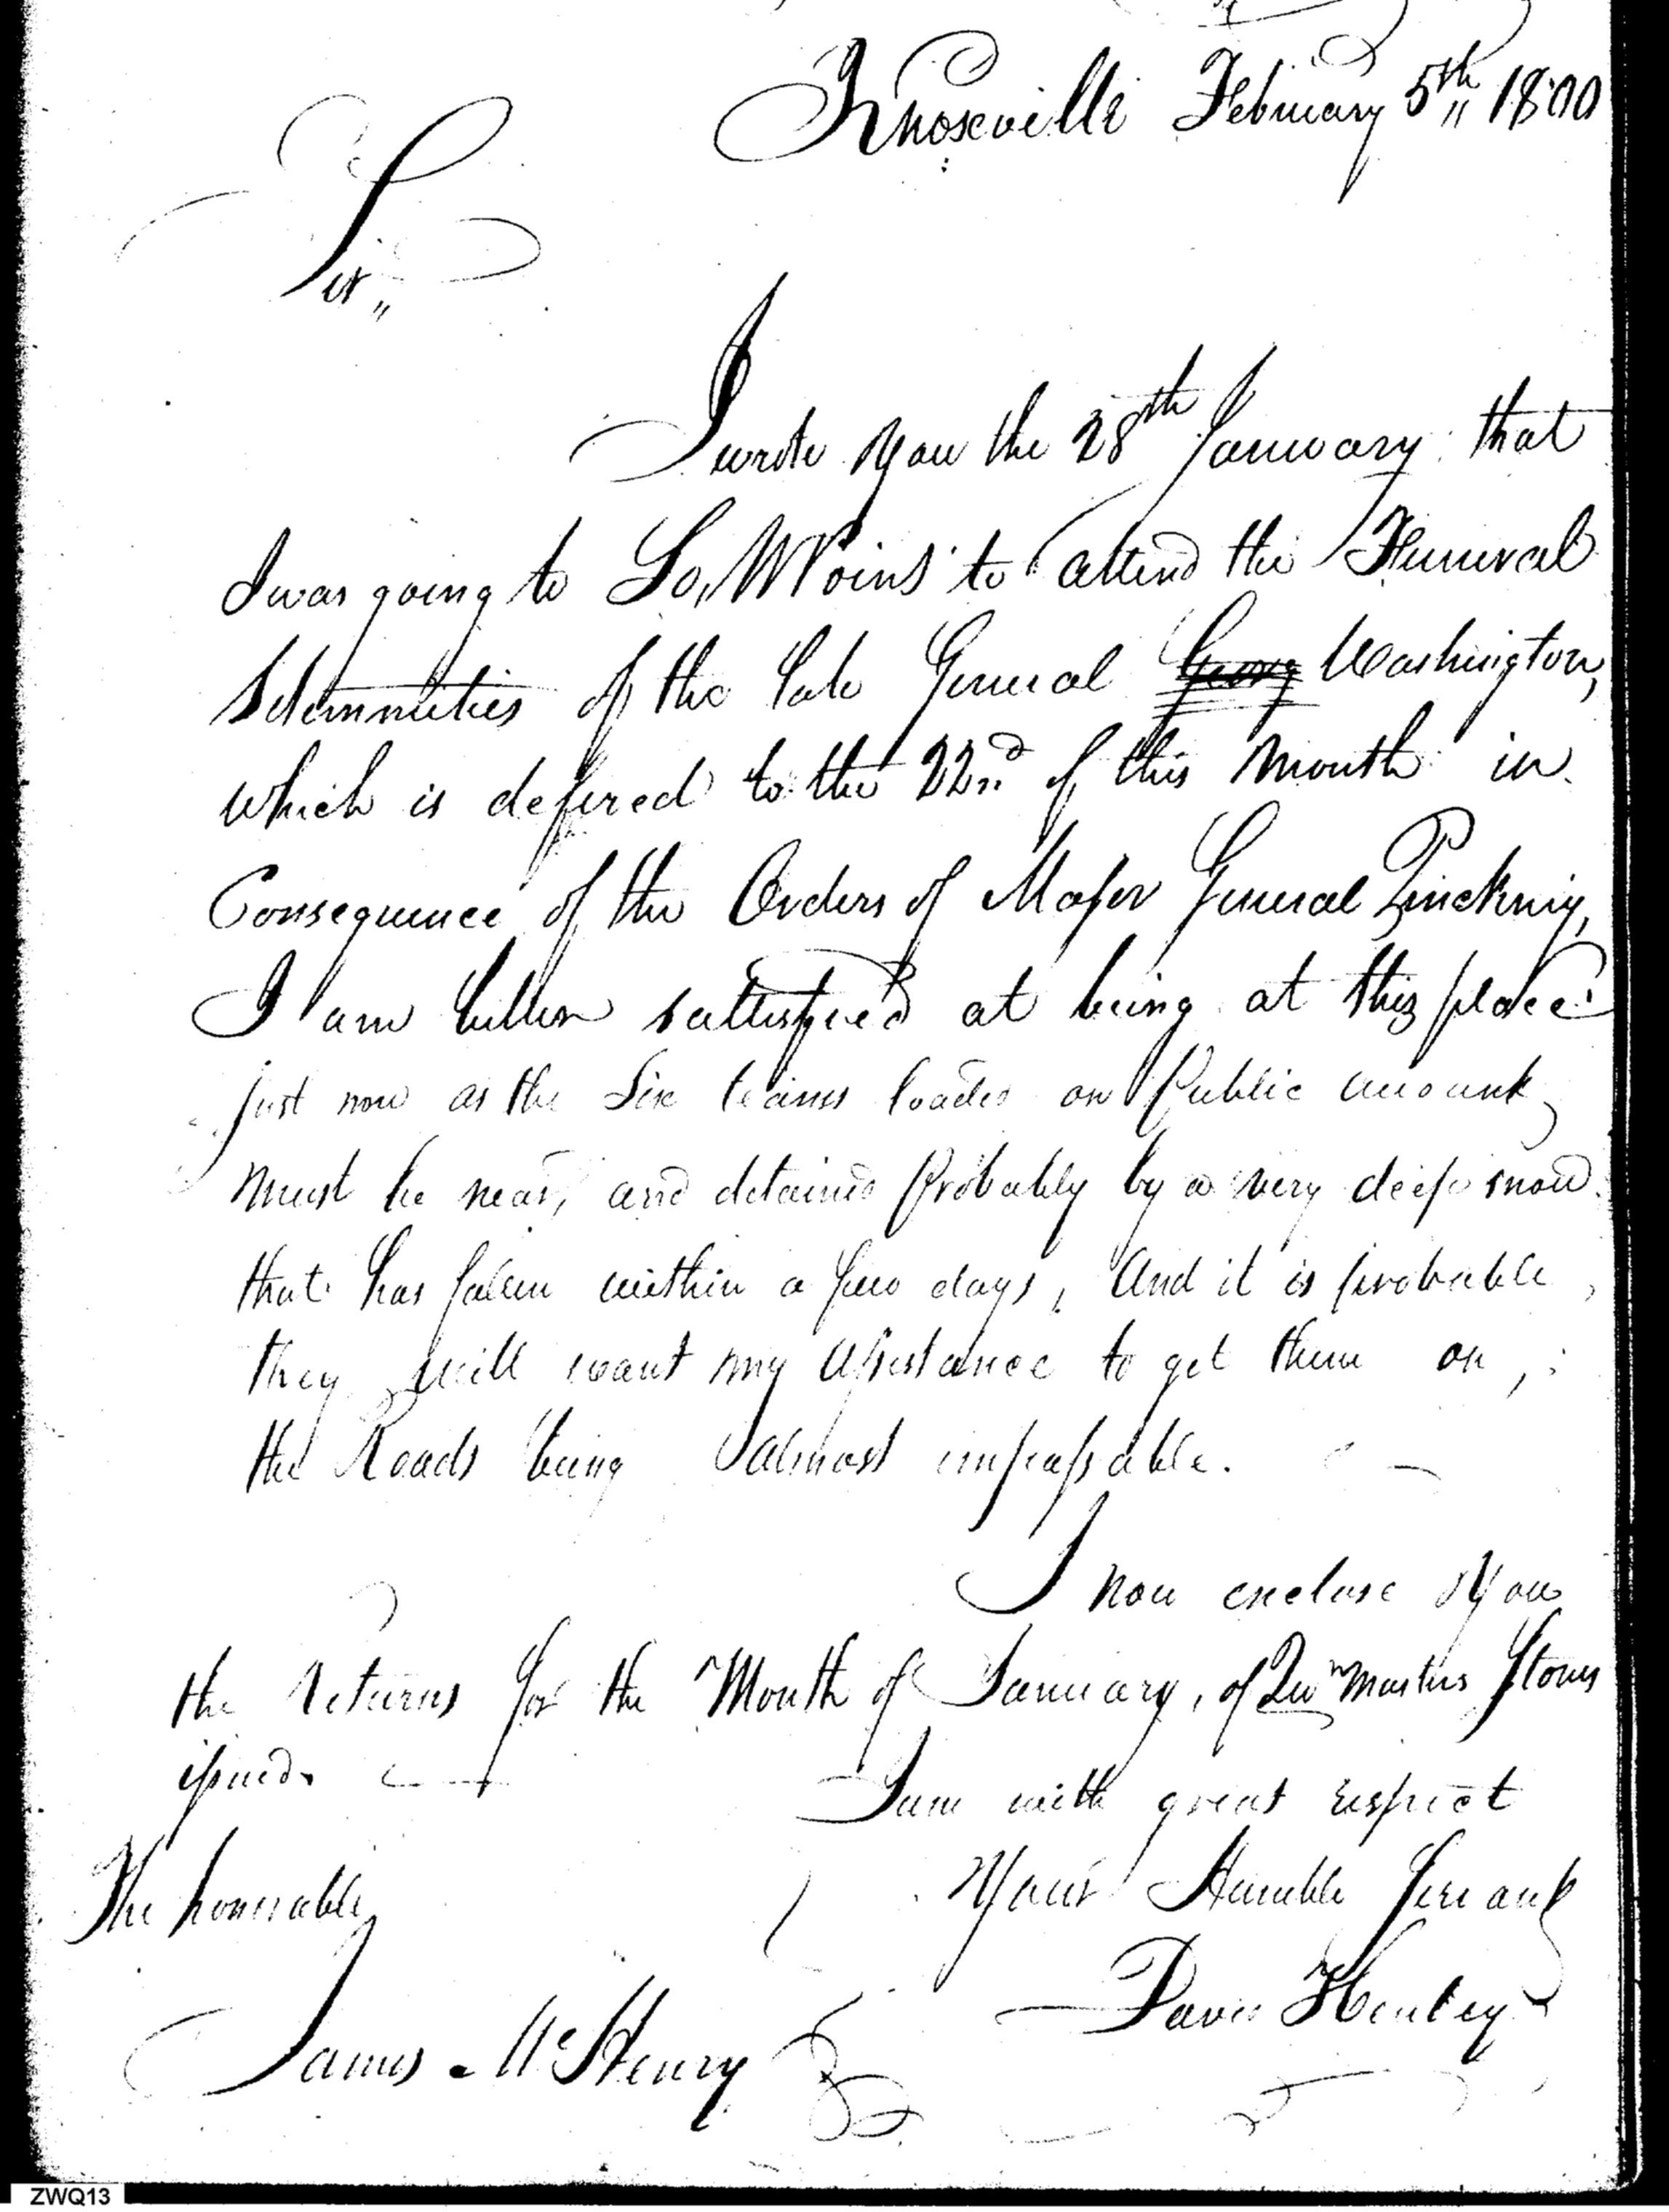 Knoxville February 5th 1800
Sir,,
I wrote you the 28th January that
I was going to So,, W Point to attend the Funeral
Solemnities of the late General Georg Washington,
which is defered to the 22nd of this Month in
Consequence of the Orders of Major General Pinckney,
I am better sattisfied at being at this place
just now as the Six teams loaded on Public account
must be near, and detained Probably by a very deep snow
that has falen within a few days, And it is probable,
they will want my Assistance to get them on,
the Roads being almost impassable.
I now enclose You
the Returns for the Month of January, of Qur Masters Stores
issued.
I am with great respect
Your Humble Servant
David Henley
The honorable
James McHenry
ZWQ13